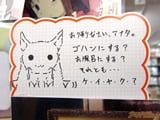 お帰りなさい、アナタ。
ゴハンにする？
お風呂にする？
それとも・・・
ケ・イ・ヤ・ク・？